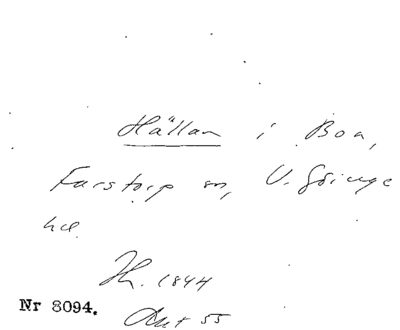 Hällan i Boa,
Farstorp sn, V. Göinge
hd
H. 1844
Nr 8094.
Ant 55